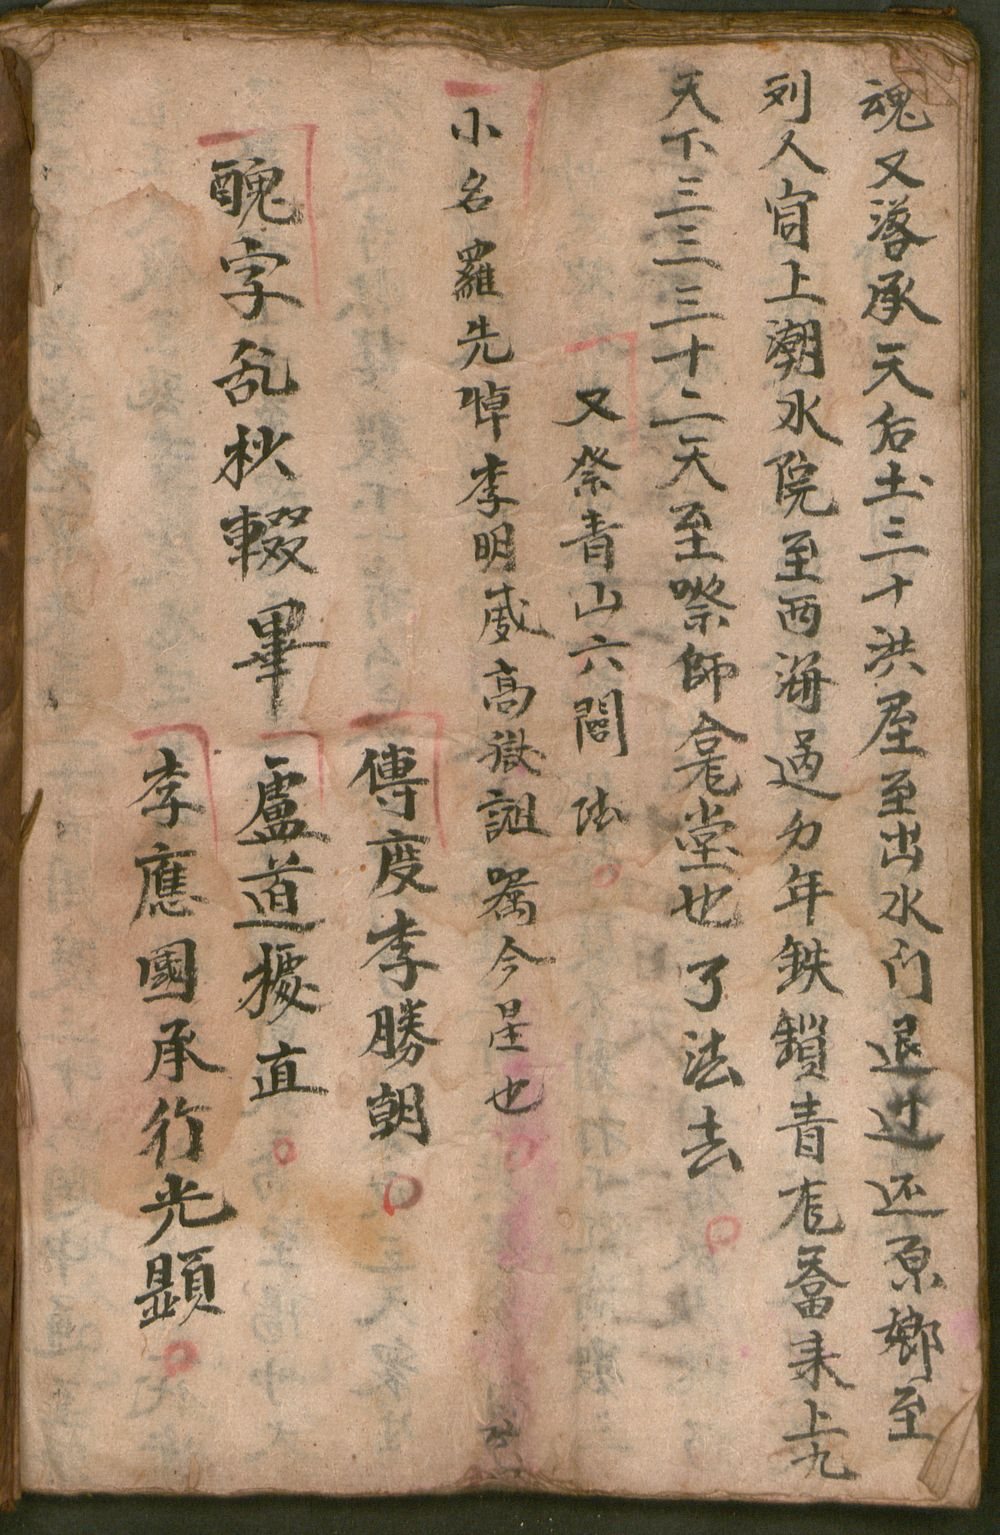 魂又落承天后土三十洪屋至出水门退过还原鄉至
列人宵上潮水院至西海过万年鉄鎖青龙畬来上九
天下三三三十二天至祭師龛堂也了法去
又祭青山六閣法
小名羅先悼李明威高嶽誕嘱今星也
傳度李勝朝
醜字乱抄輟畢
盧道據直
李應國承行光顕